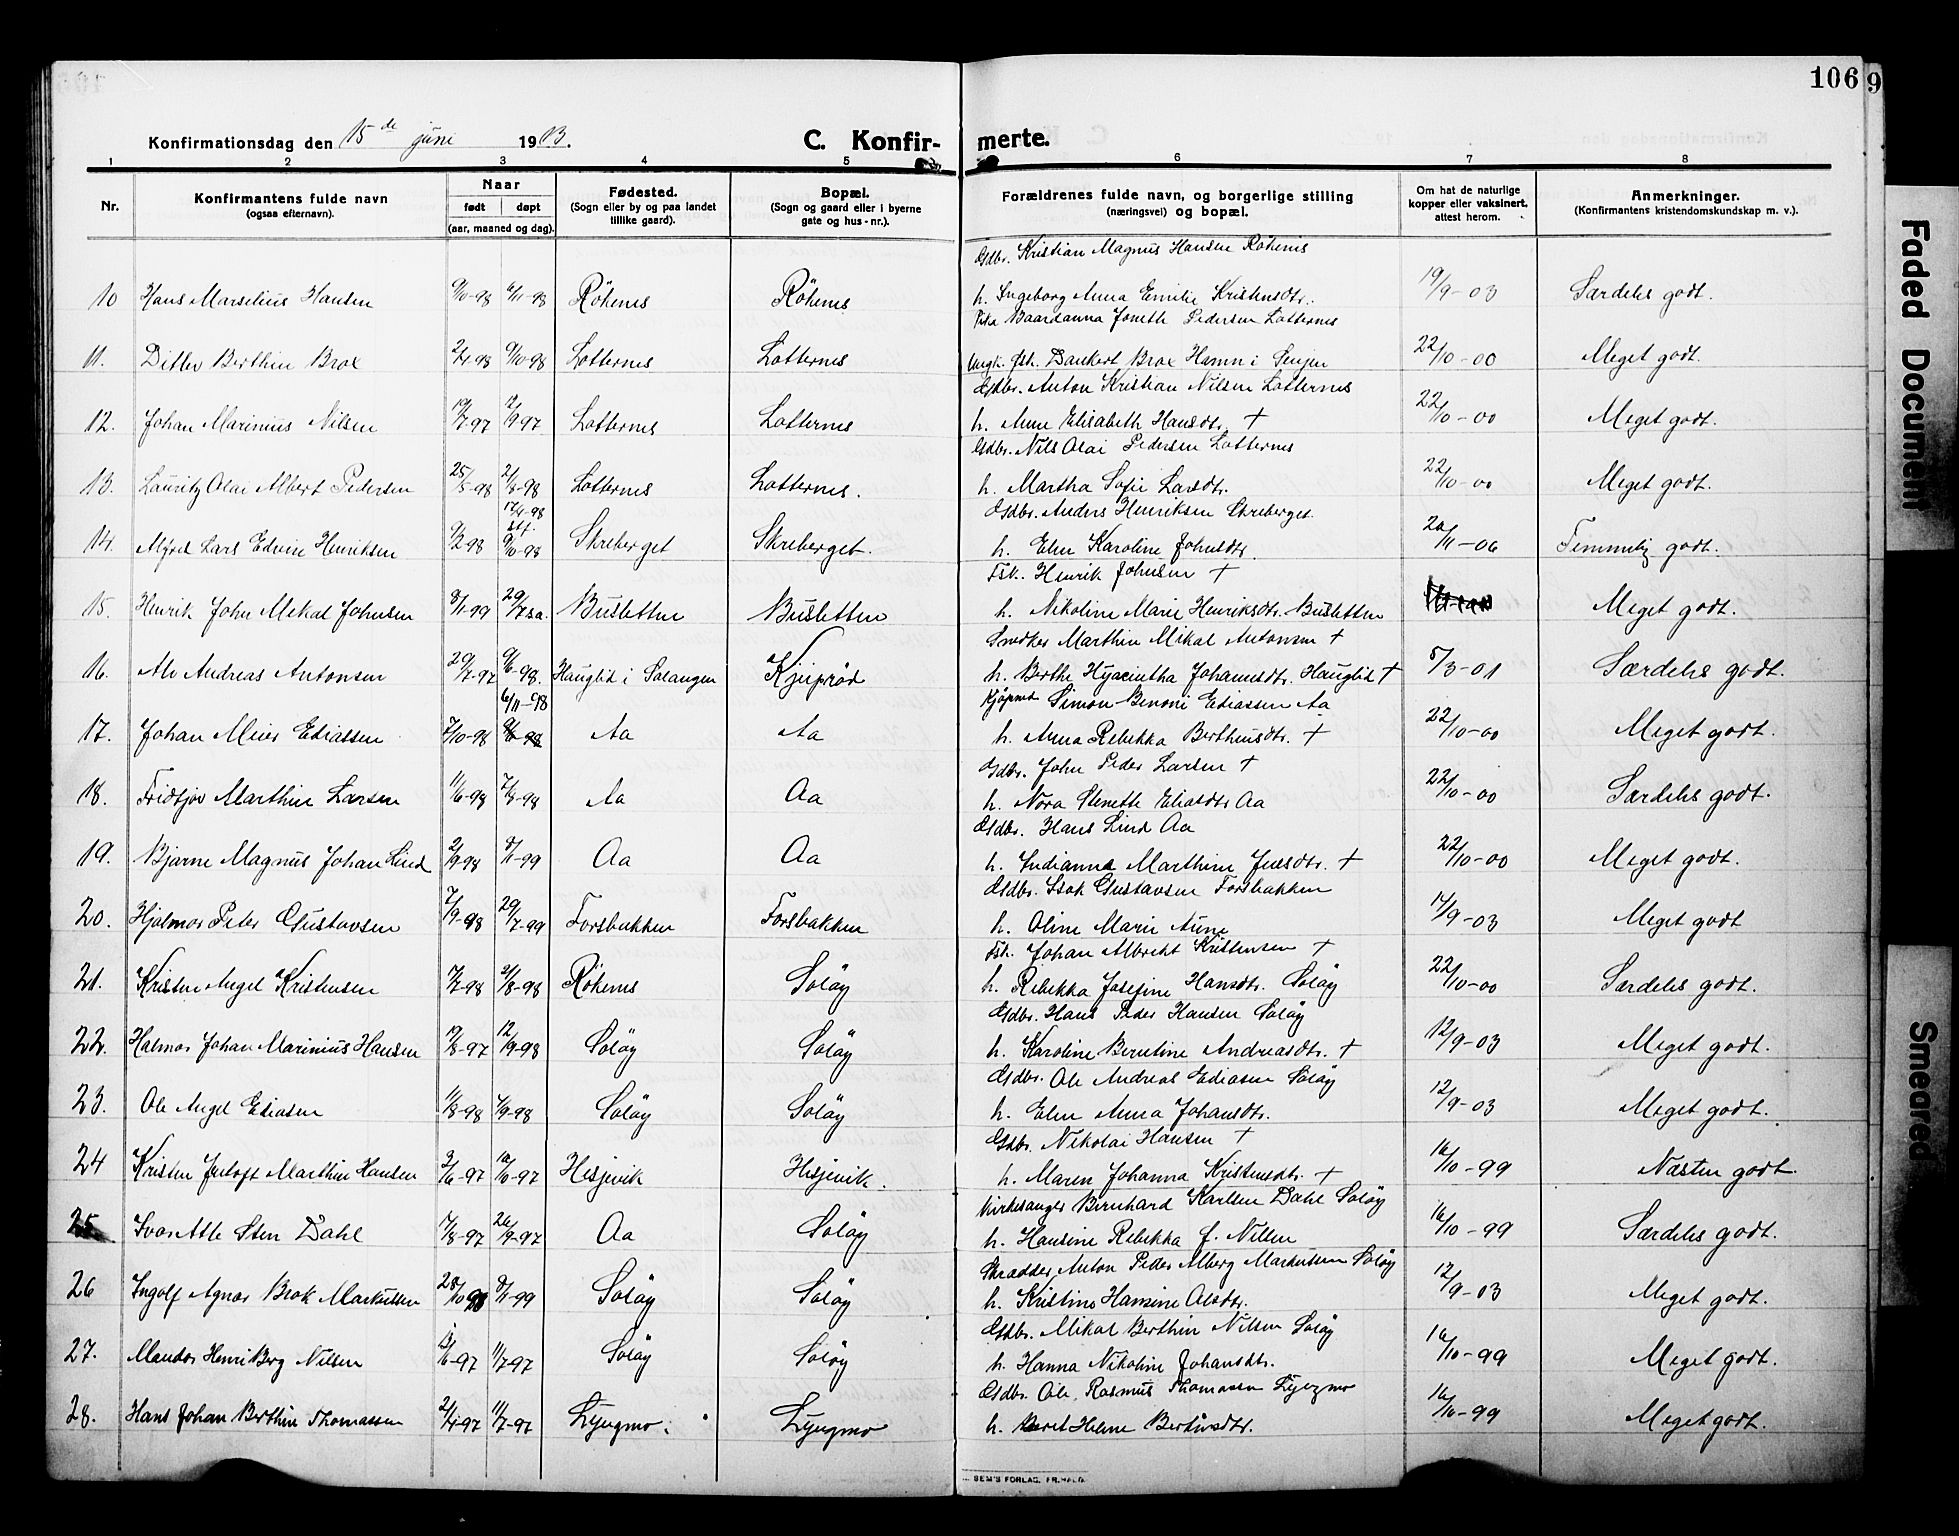 106
9
Konfirmationsdag den 15de juni 1913.
C. Konfir-
merte.
1 2 3 4 5 6 7 8
Nr.
Konfirmantens fulde navn
(ogsaa efternavn).
Naar
født døpt
(aar, maaned og dag).
Fødested.
(Sogn eller by og paa landet
tillike gaard).
Bopæl.
(Sogn og gaard eller i byerne
gate og hus-nr.).
Forældrenes fulde navn, og borgerlige stilling
(næringsvei) og bopæl.
Om hat de naturlige
kopper eller vaksinert,
attest herom.
Anmerkninger.
(Konfirmantens kristendomskundskap m. v.).
Gdbr. Kristian Magnus Hansen Rökenes
10 Hans Marselius Hansen 9/10-98 6/11-98 Rökenes Rökenes h. Ingeborg Anna Emilie Kristensdtr. 19/9-03 Særdeles godt.
Pike Baardanna Jonette Pedersen Lotternes
11. Ditlev Berthin Brox 2/4-98 9/10-98 Lotternes Lotternes Ungk. fsk. Dankert Brox Hamn i Senjen 22/10-00 Meget godt.
Gdbr. Anton Kristian Nilsen Lotternes
12. Johan Marinius Nilsen 19/7-97 12/9-97 Lotternes Lotternes h. Anne Elisabeth Hansdtr. † 22/10-00 Meget godt.
Gdbr. Nils Olai Pedersen Lotternes
13. Lauritz Olai Albert Pedersen 25/5-98 21/8-98 Lotternes Lotternes. h. Martha Sofie Larsdtr. 22/10-00 Meget godt.
17/4-98 Gdbr. Anders Henriksen Skreberget
14. Alfred Lars Edvin Henriksen 9/2-98 stf. 9/10-98 Skreberget Skreberget. h. Elen Karoline Johnsdtr. 20/11-06 Temmelig godt.
Fsk. Henrik Johnsen †
15. Henrik John Mikal Johnsen 8/1-99 29/7 s.a. Busletten Busletten h. Nikoline Marie Henriksdtr. Busletten Meget godt.
Snedker Marthin Mikal Antonsen †
16. Alv Andreas Antonsen 29/7-97 9/6-98. Hauglid i Salangen h. Berthe Hyacintha Johannesdtr. Hauglid † 8/3-01 Særdeles godt.
6/11-98 Kjøpmd Simon Benoni Ediassen Aa
17. Johan Meier Ediassen 7/10-98 Aa Aa h. Anna Rebekka Berthinsdtr. † 22/10-00 Meget godt.
Gdbr. John Peder Larsen †
18. Fridtjov Marthin Larsen 11/6-98 7/8-98 Aa Aa h. Nora Stenette Eliasdtr Aa 22/10-00 Særdeles godt.
Gdbr. Hans Lind Aa
19. Bjarne Magnus Johan Lind 2/9-98 8/1-99 Aa Aa h. Indianna Marthine Jensdtr. † 22/10-00 Meget godt.
Gdbr. Isak Gustavsen Forsbakken
20. Hjalmar Peter Gustavsen 7/9-98 29/7-99 Forsbakken Forsbakken h. Oline Marie Aune 17/9-03 Meget godt
Fsk. Johan Albrecht Kristensen †
21. Kristen Angel Kristensen 7/7-98 21/8-98 Rökenes Soløy h. Rebekka Josefine Hansdtr. Soløy 22/10-00 Særdeles godt.
Gdbr. Hans Peder Hansen Soløy
22. Halmar Johan Marinius Hansen 17/8-97 12/9-98 Soløy Soløy h. Karoline Berntine Andreasdtr. † 12/9-03 Meget godt.
Gdbr. Ole Andreas Ediasen Soløy
23. Ole Angel Ediasen 11/8-98 4/9-98 Soløy Soløy h. Elen Anna Johansdtr. 12/9-03 Meget godt.
Gdbr. Nikolai Hansen †
24 Kristen Marthin Hansen 3/6-97 10/10-97 Hesjevik Hesjevik. h. Maren Johanna Kristensdtr. † 16/10-99 Næsten godt.
Kirkesanger Bernhard Karlsen Dahl Soløy
25. Sten Dahl 7/8-97 26/9-97 Aa Soløy h. Hansine Rebekka f. Nilsen 16/10-99 Særdeles godt.
Skrædder Anton Peder Alberg Markussen Soløy
26 Ingolf Agnar Brox Markussen 28/10-98 8/1-99 Soløy Soløy h. Kristine Hansine Olsdtr. 12/9-03 Meget godt.
Gdbr. Mikal Berthin Nilsen Soløy
27. Henri Berg Nilsen 13/6-97 11/7-97 Soløy Soløy h. Hanna Nikoline Johansdtr. 16/10-99 Meget godt.
Gdbr. Ole Rasmus Thomassen
28. Hans Johan Berthin Thomassen 21/4-97 11/7-97 Ljungmo. Ljungmo h. Beret Helene Bertinsdtr. 16/10-99 Meget godt.
SEM'S FORLAG, FR.HALD.
Faded Document
Smeared